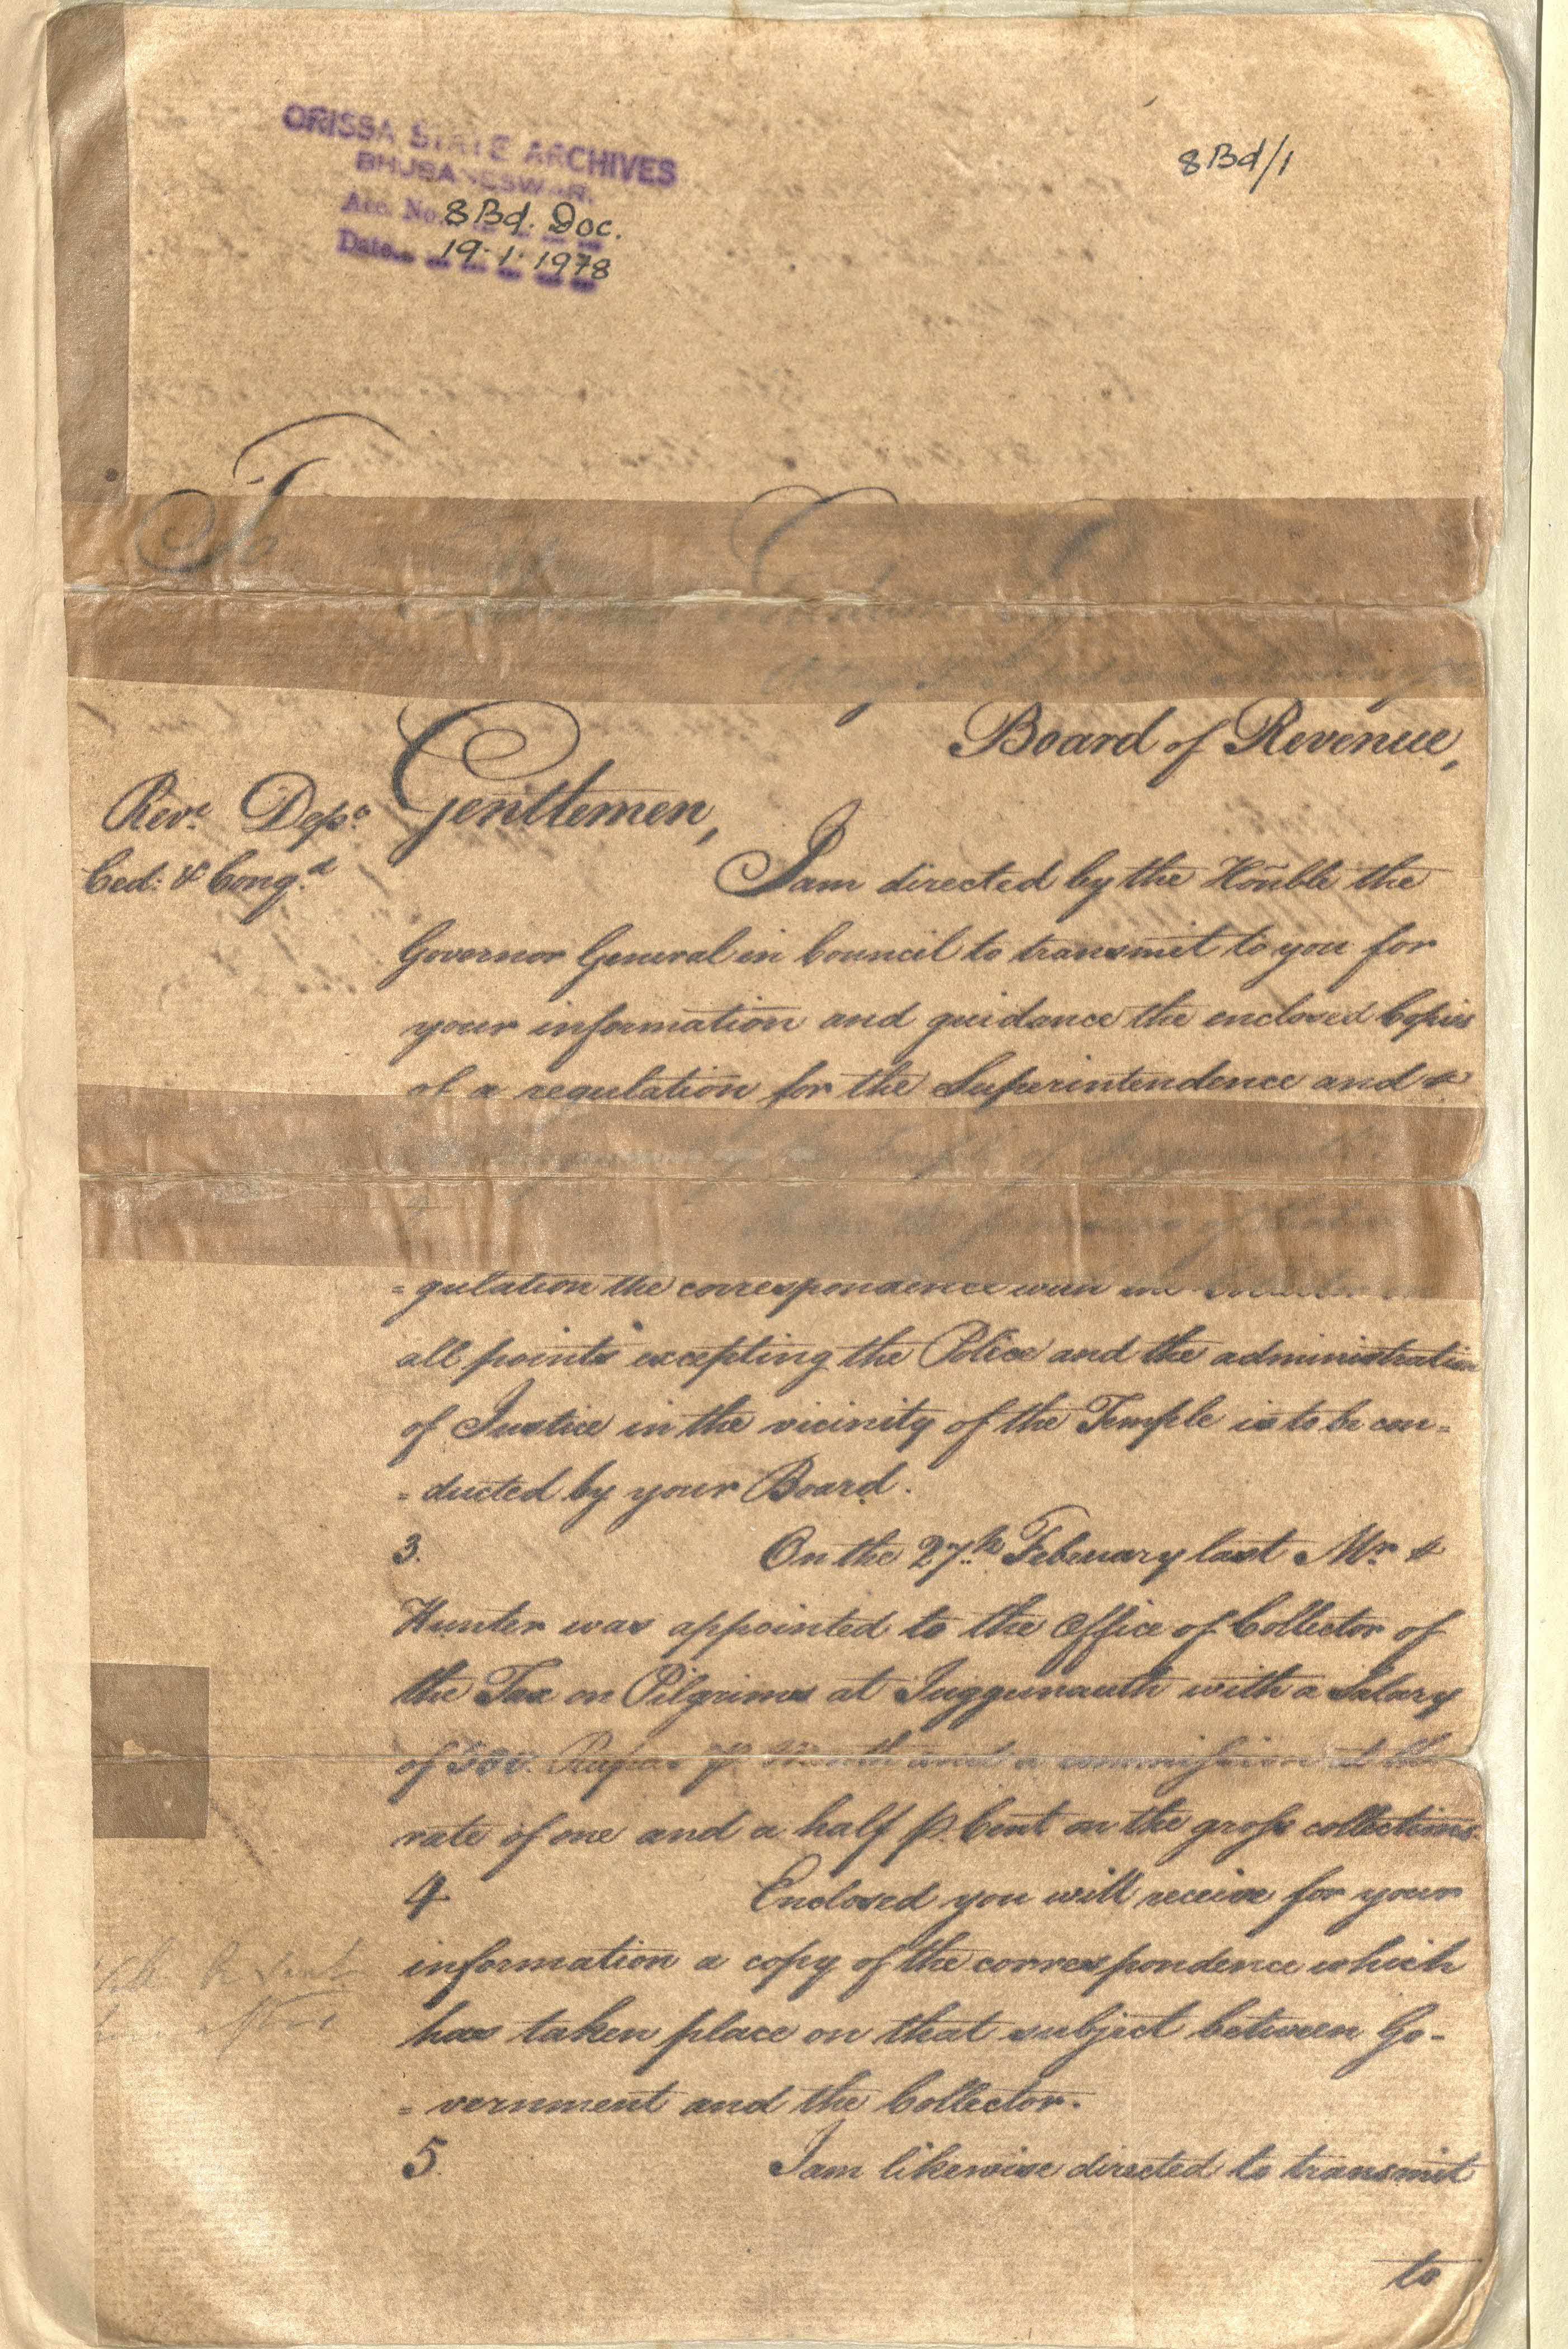 ORISSA STATE ARCHIVES
BHUBANESWAR.
Acc. No. 8 Bd. Doc.
Date. 19.1.1978
8 Bd/1
To
Board of Revenue,
Gentlemen,
Reve. Depo.
Ced: & Conqd.
I am directed by the Honble the
Governor General in Council to transmit to you for
your information and guidance the enclosed Copies
of a regulation for the Superintendence and
= gulation the correspondence with the
all points excepting the Police and the administration
of Justice in the vicinity of the Temple is to be con=
= ducted by your Board.
3. On the 27th February last Mr.
Hunter was appointed to the Office of Collector of
the Tax on Pilgrims at Juggunauth with a Salary
of 500. Rupees P Month and a commission at the
rate of one and a half p. Cent on the gross collections.
4 Enclosed you will receive for your
information a copy of the correspondence which
has taken place on that subject between Go-
= vernment and the Collector.
5. I am likewise directed to transmit
to